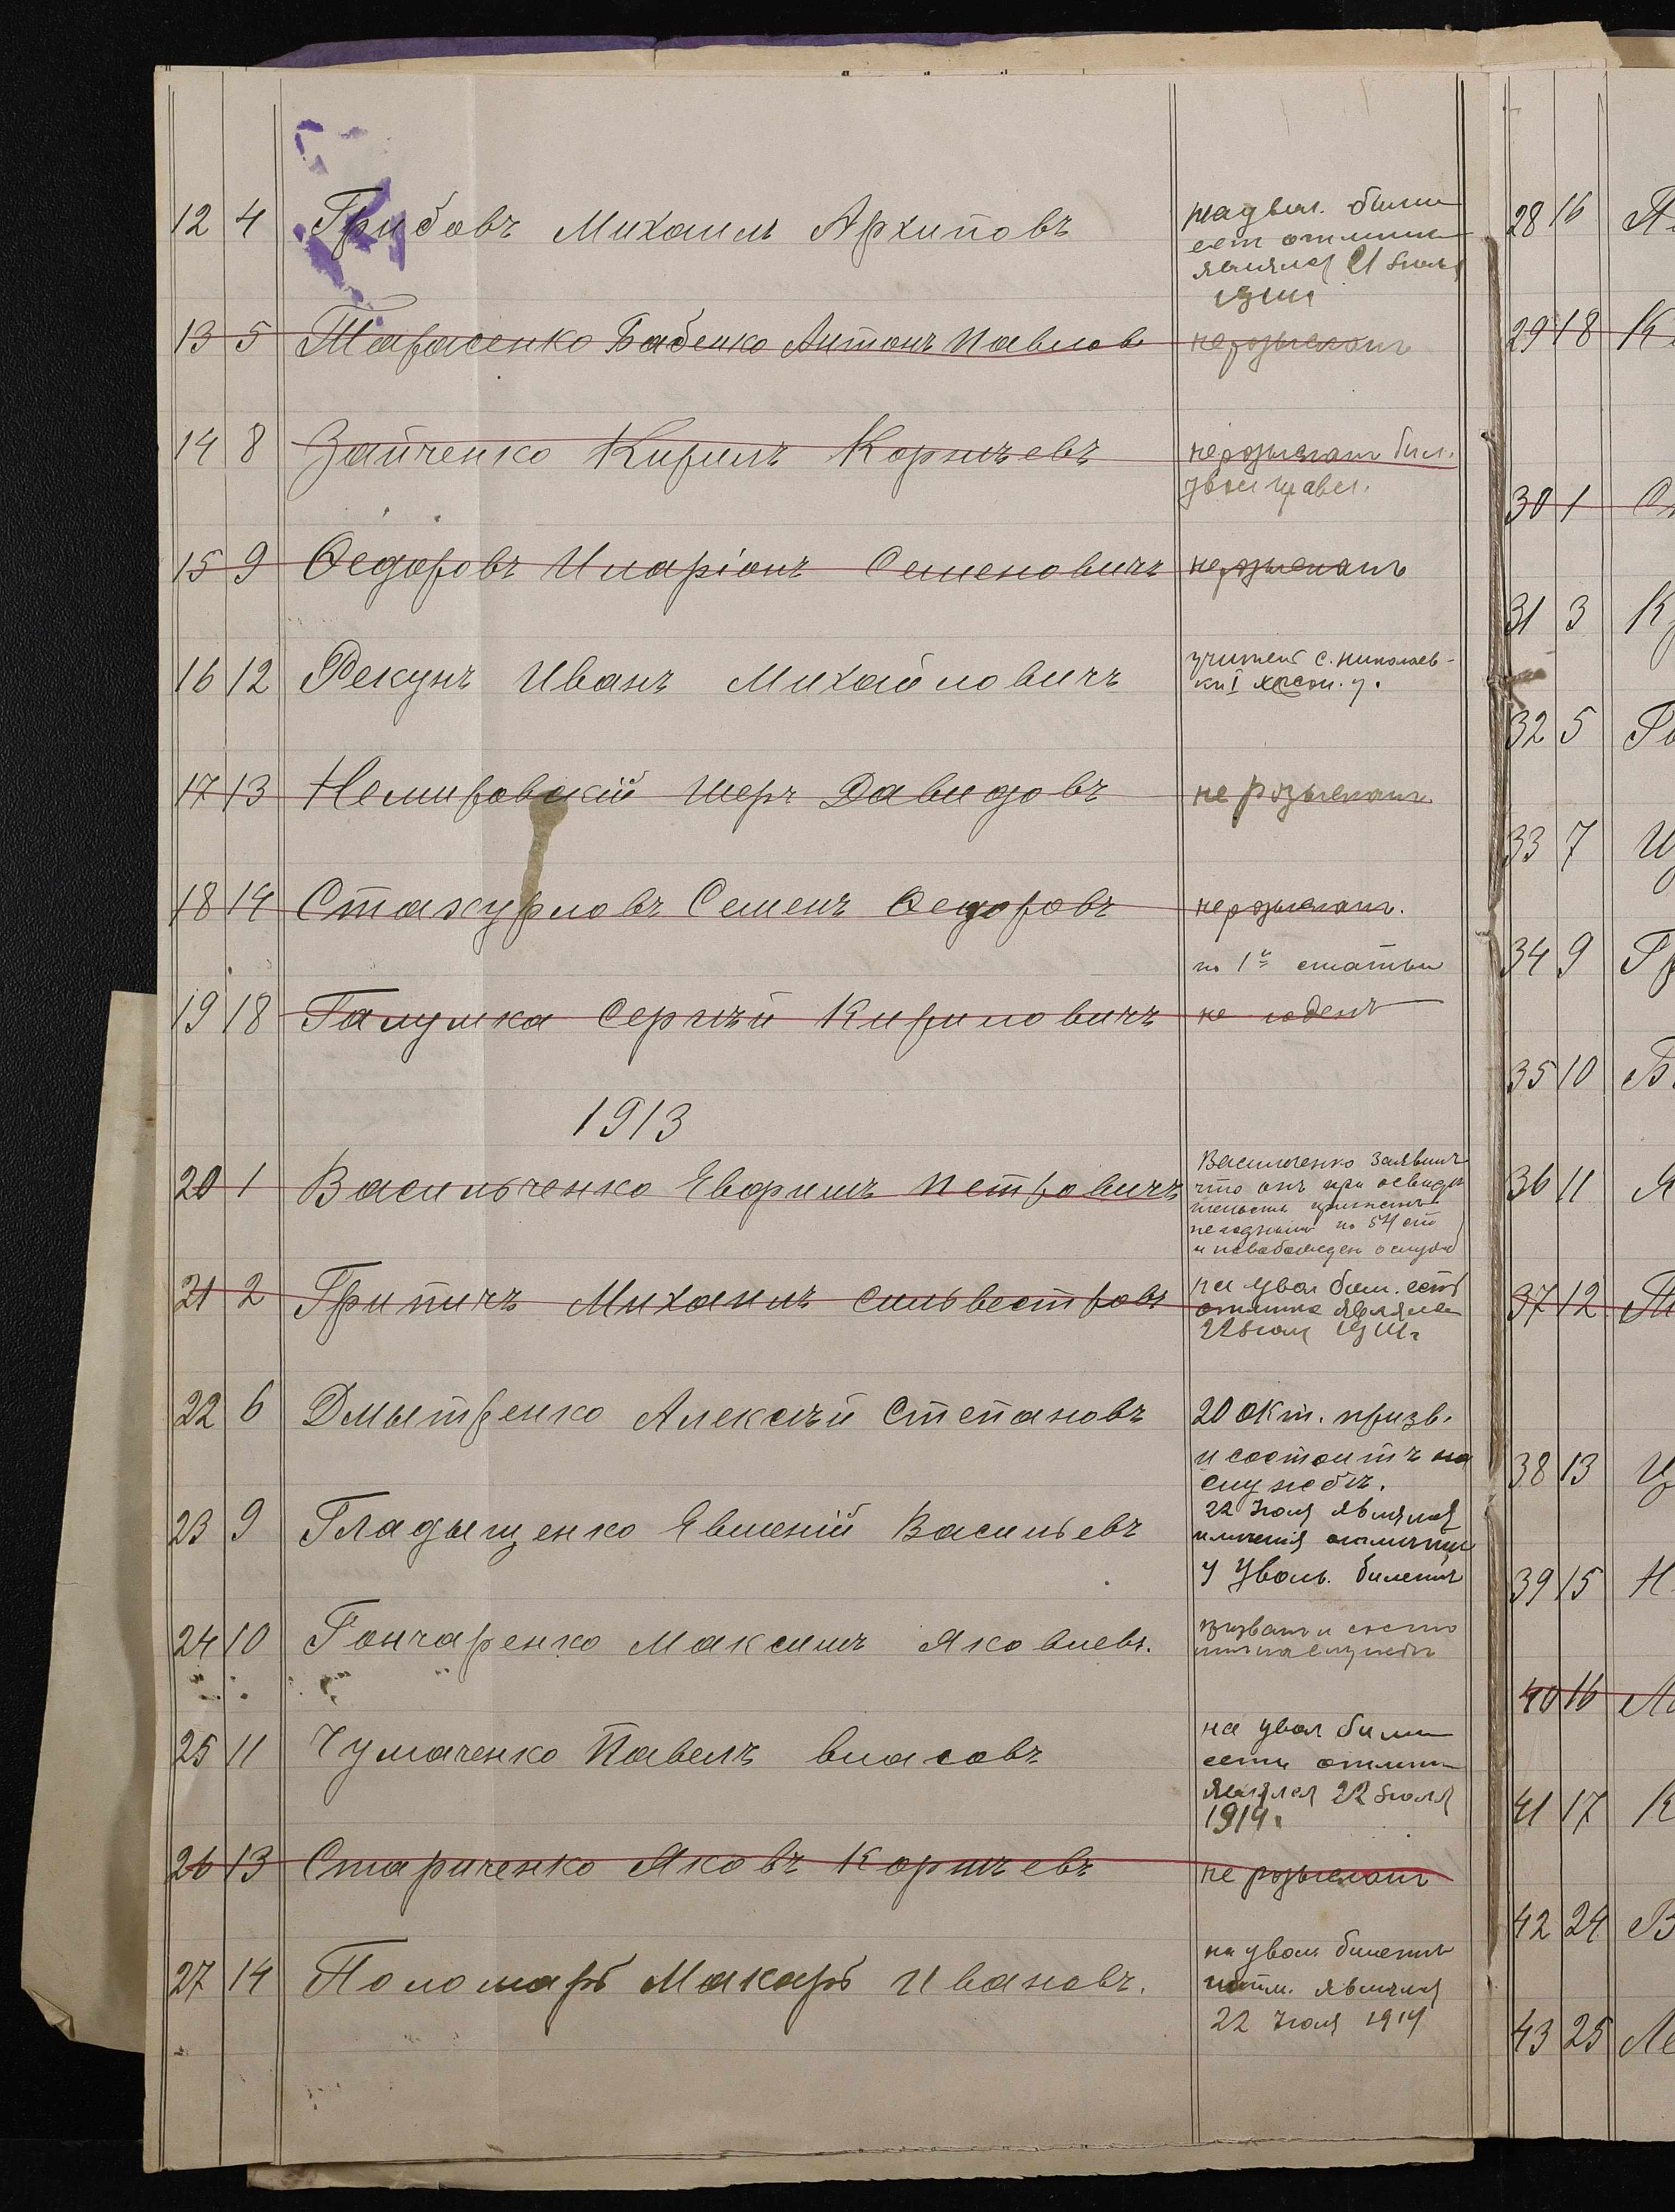 12 4 Грибовъ Михаилъ Архиповъ
на увол. били
ест отмит
явился 21 Іюля
13 5 Тарасенко Бабенко Антонъ Павлов
не розысканъ
14 8 Зайченко Кирилъ Корнѣевъ
не розысканъ бил.
15 9 Ѳедоровъ Иларіонъ Семеновичъ
не розысканъ
16 12 Рекунъ Иванъ Михайловичъ
учитель с. Николаев-
ки I
17 13 Немировскій Шеръ Давидовъ
не розысканъ
18 14 Стажурловъ Семенъ Ѳедоровъ
не розысканъ.
по 1й статьи
19 18 Галушка Сергѣй Кириловичъ
не годенъ
1913
20 1 Васильченко Евфимъ Петровичъ
Васильченко заявилъ
что онъ при освидѣ
тельств признанъ
негоднымъ по 54 ст
21 2 Грипичъ Михаилъ Сильвестровъ
на увол бил. есть
отмитка являлся
22 Іюля 1914 г
22 6 Дмытренко Алексѣй Степановъ
20 окт. призв.
и состоитъ на
службѣ.
23 9 Гладыщенко Евгеній Васильевъ
22 Іюля являлся
у Уволь. билетъ
24 10 Гончаренко Максимъ Яковлевъ.
призванъ и состо
итъ на службѣ
25 11 Чумаченко Павелъ Власовъ
на увол били
есть отмит
являлся 22 Іюля
1914 г
26 13 Стариченко Яковъ Корнѣевъ
не розысканъ
27 14 Поломаръ Макаръ Ивановъ.
на увол билетѣ
явился
22 Іюля 1914
28 16
29 18 К
30 1
31 3 К
32 5
33 7
34 9
35 10
36 11 Я
37 12
38 13
39 15 Н
40 16
41 17 К
42 24 В
43 25